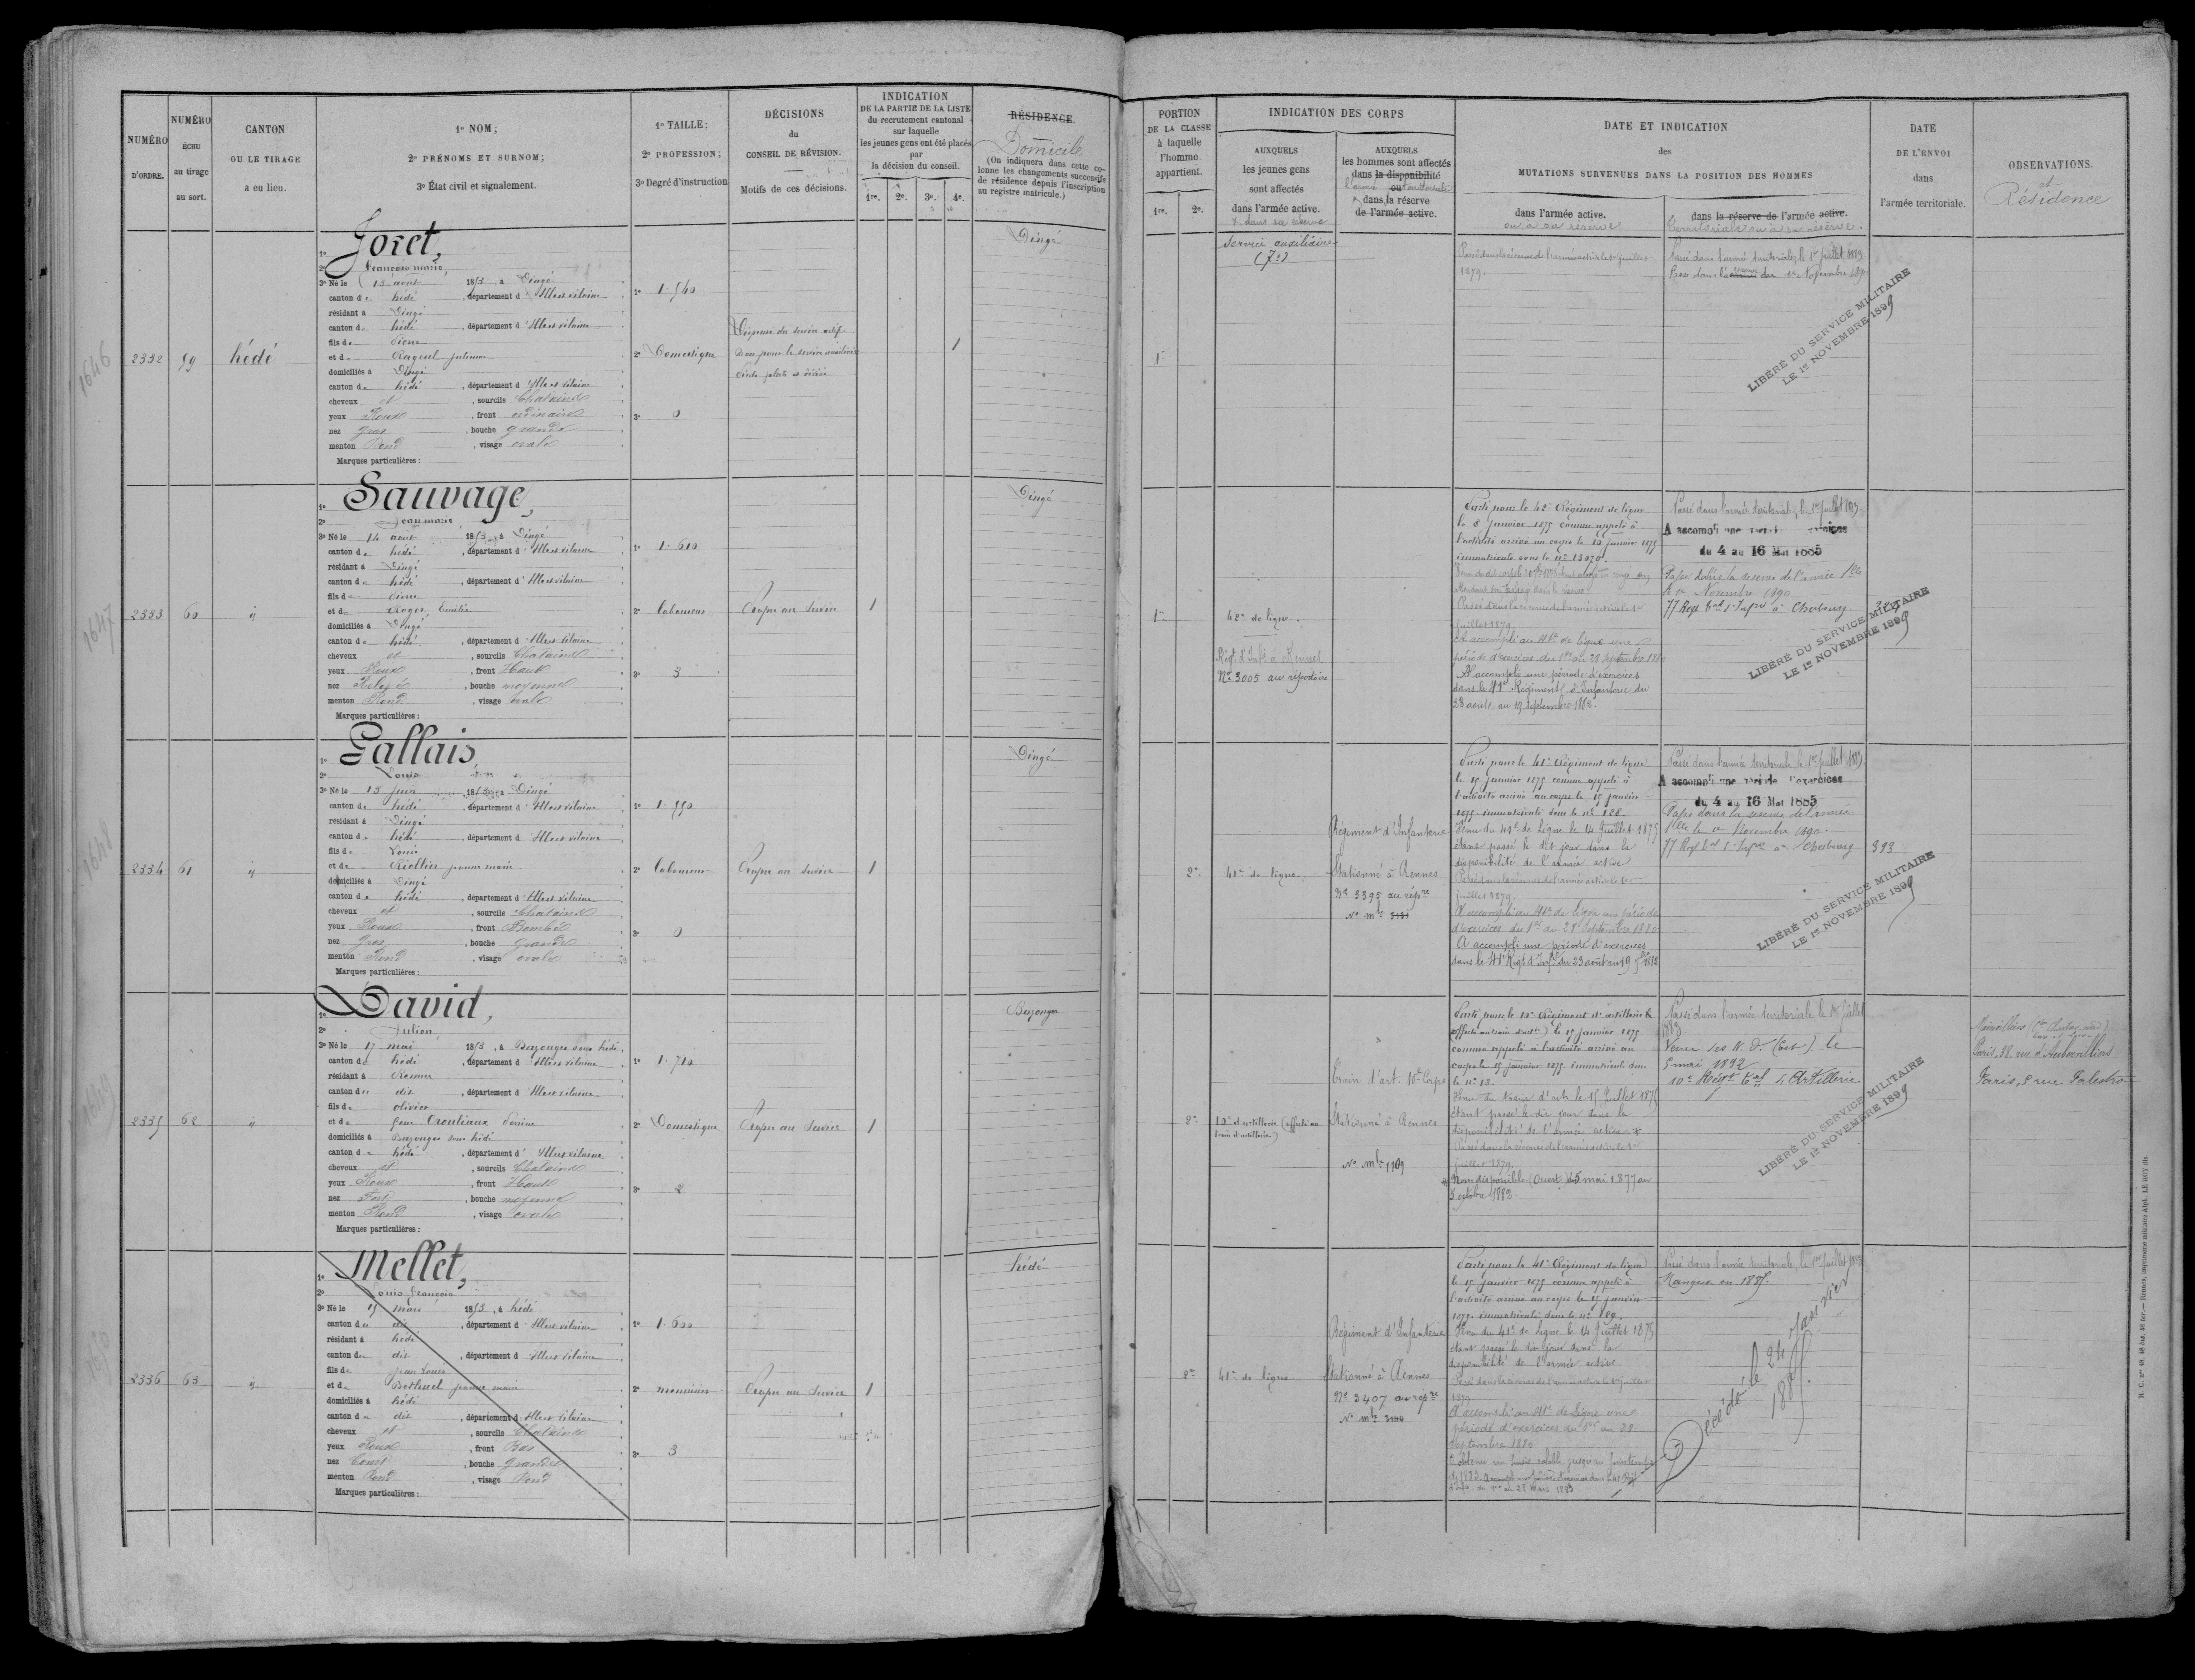 NUMÉRO D'ORDRE.
NUMÉRO ÉCHU au tirage au sort.
CANTON OU LE TIRAGE a eu lieu.
1º NOM;
2º PRÉNOMS ET SURNOM;
3º État civil et signalement.
1º TAILLE;
2º PROFESSION;
3º Degré d'instruction
DÉCISIONS
du
CONSEIL DE RÉVISION.
Motifs de ces décisions.
INDICATION
DE LA PARTIE DE LA LISTE
du recrutement cantonal
sur laquelle
les jeunes gens ont été placés
par
la décision du conseil.
1re. 2e. 3e. 4e.
RÉSIDENCE.
Domicile
(On indiquera dans cette co-
lonne les changements successifs
de résidence depuis l'inscription
au registre matricule.)
1646
2332 59 hédé
1º Joret,
2º françois marie,
3º Né le 13 août 1853, à Dingé
canton de hédé, département d'Ille et vilaine
résidant à Dingé
canton de hédé, département d'Ille et vilaine
fils de Pierre
et de Raguel
domiciliés à Dingé
canton de hédé, département d'Ille et vilaine
cheveux et, sourcils Chatains
yeux Roux, front ordinaire
nez gros, bouche grande
menton Rond, visage ovale
Marques particulières:
1º 1.540
2º Domestique
3º 0
Dispensé du service actif.
Bon pour le service auxiliaire
1
Dingé
1647
2333 60 ij
1º Sauvage,
2º Jean marie
3º Né le 14 août 1853, à Dingé
canton de hédé, département d'Ille et vilaine
résidant à Dingé
canton de hédé, département d'Ille et vilaine
fils de Pierre
et de Roger, Emilie
domiciliés à Dingé
canton de hédé, département d'Ille et vilaine
cheveux et, sourcils Chatains
yeux Roux, front Haut
nez Relevé, bouche moyenne
menton Rond, visage ovale
Marques particulières:
1º 1.610
2º laboureur
3º 3
Propre au Service
1
Dingé
1648
2334 61 ij
1º Gallais,
2º Louis
3º Né le 13 Juin 1853, à Dingé
canton de hédé, département d'Ille et vilaine
résidant à Dingé
canton de hédé, département d'Ille et vilaine
fils de Louis
et de Riollier jeanne marie
domiciliés à Dingé
canton de hédé, département d'Ille et vilaine
cheveux et, sourcils Chatains
yeux Roux, front Bombé
nez Gros, bouche grande
menton Rond, visage ovale
Marques particulières:
1º 1.550
2º laboureur
3º 0
Propre au Service
1
Dingé
1649
2335 62 ij
1º David,
2º Julien
3º Né le 17 mai 1853, à Bazouges sous hédé
canton de hédé, département d'Ille et vilaine
résidant à
canton de dit, département d'Ille et vilaine
fils de olivier
et de feue
domiciliés à Bazouges sous hédé
canton de hédé, département d'Ille et vilaine
cheveux et, sourcils Chatains
yeux Roux, front Haut
nez Fort, bouche moyenne
menton Rond, visage ovale
Marques particulières:
1º 1.710
2º Domestique
3º 2
Propre au Service
1
Bazouges
1650
2336 63 ij
1º Mellet,
2º Louis françois
3º Né le 15 mars 1853, à hédé
canton de dit, département d'Ille et vilaine
résidant à hédé
canton de dit, département d'Ille et vilaine
fils de Jean Louis
et de Berthuel jeanne marie
domiciliés à hédé
canton de dit, département d'Ille et vilaine
cheveux et, sourcils Chatains
yeux Roux, front Bas
nez Court, bouche grande
menton Rond, visage Rond
Marques particulières:
1º 1.600
2º menuisier
3º 3
Propre au Service
1
hédé
PORTION
DE LA CLASSE
à laquelle
l'homme
appartient.
1re. 2e.
INDICATION DES CORPS
AUXQUELS
les jeunes gens
sont affectés
dans l'armée active.
& dans sa réserve
AUXQUELS
les hommes sont affectés
dans la disponibilité
ou
l'armée territoriale
dans la réserve
de l'armée active.
DATE ET INDICATION
des
MUTATIONS SURVENUES DANS LA POSITION DES HOMMES
dans l'armée active.
ou à sa réserve
dans la réserve de l'armée active.
territoriale ou à sa réserve.
DATE
DE L'ENVOI
dans
l'armée territoriale.
OBSERVATIONS.
et
Résidence
1re
Service auxiliaire
(7e)
Passé dans la réserve de l'armée active le 1er juillet
1879.
Passé dans l'armée territoriale, le 1er Juillet 1883.
Passé dans la réserve du 1er Novembre 1890
LIBÉRÉ DU SERVICE MILITAIRE
LE 1er NOVEMBRE 1899
1re
42e de ligne.
Régt d'Infie à Rennes
Nº 3005 au répertoire
Parti pour le 42e Régiment de ligne
le 8 Janvier 1875 comme appelé à
l'activité arrivé au corps le 10 Janvier 1875
immatriculé sous le nº 15070.
Passé dans la réserve de l'armée active le 1er
juillet 1879.
A accompli au 41e de ligne une
période d'exercices du 1er au 28 septembre 1880
A accompli une période d'exercices
dans le 41e Régiment d'Infanterie du
23 août au 19 Septembre 1882.
Passé dans l'armée territoriale, le 1er Juillet 1883.
A accompli une période d'exercices
du 4 au 16 Mai 1885
Passé dans la réserve de l'armée tlle
le 1er Novembre 1890
77 Regt tal d'Infie à Cherbourg.
LIBÉRÉ DU SERVICE MILITAIRE
LE 1er NOVEMBRE 1899
2e
41e de ligne.
Régiment d'Infanterie
Stationné à Rennes
Nº 3395 au répre
Nº mle 3131
Parti pour le 41e Régiment de ligne
le 15 janvier 1875 comme appelé à
l'activité arrivé au corps le 15 janvier
1875 immatriculé sous le nº 188.
Venu du 41e de Ligne le 14 Juillet 1875
étant passé le dit jour dans la
disponibilité de l'armée active
Passé dans la réserve de l'armée active le 1er
juillet 1879.
A accompli au 41e de Ligne une période
d'exercices du 1er au 28 Septembre 1880
A accompli une période d'exercices
dans le 41e Régt d'Infie du 23 août au 19 7bre 1882
Passé dans l'armée territoriale le 1er Juillet 1883.
A accompli une période d'exercices
du 4 au 16 Mai 1885
Passé dans la réserve de l'armée
tlle le 1er Novembre 1890.
77 Regt tal d'Infie à Cherbourg
393
LIBÉRÉ DU SERVICE MILITAIRE
LE 1er NOVEMBRE 1899
2e
10e d'artillerie (affecté au
train d'artillerie.)
Train d'art. 10e Corps
Stationné à Rennes
Nº mle 1109
Parti pour le 10e Régiment d'artillerie
(affecté au train d'artie) le 15 janvier 1875
comme appelé à l'activité arrivé au
corps le 15 janvier 1875 immatriculé sous
le nº 13.
Venu du train d'arte le 15 Juillet 1875
étant passé le dit jour dans la
disponibilité de l'armée active
Passé dans la réserve de l'armée active le 1er
juillet 1879.
Non disponible (Ouest) du 5 mai 1877 au
5 octobre 1882
Passé dans l'armée territoriale le 1er Juillet
1883
Venu des N. D. (Est) le
5 mai 1892
10e Régt tal d'Artillerie
LIBÉRÉ DU SERVICE MILITAIRE
LE 1er NOVEMBRE 1899
Paris, 38 rue d'Aubervilliers
Paris, 2 rue Palestro
2e
41e de ligne
Régiment d'Infanterie
Stationné à Rennes
Nº 3407 au répre
Nº mle
Parti pour le 41e Régiment de ligne
le 15 janvier 1875 comme appelé à
l'activité arrivé au corps le 15 janvier
1875 immatriculé sous le nº 189.
Venu du 41e de Ligne le 14 Juillet 1875
étant passé le dit jour dans la
disponibilité de l'armée active
Passé dans la réserve de l'armée active le 1er juillet
1879
A accompli au 41e de Ligne une
période d'exercices du 1er au 28
Septembre 1880
Passé dans l'armée territoriale, le 1er Juillet 1883
Manque en 1885.
Décédé le 24 Janvier
1885.
N. C. Nos 48, 48 bis, 48 ter.— Rennes, imprimerie militaire Alph. LE ROY fils